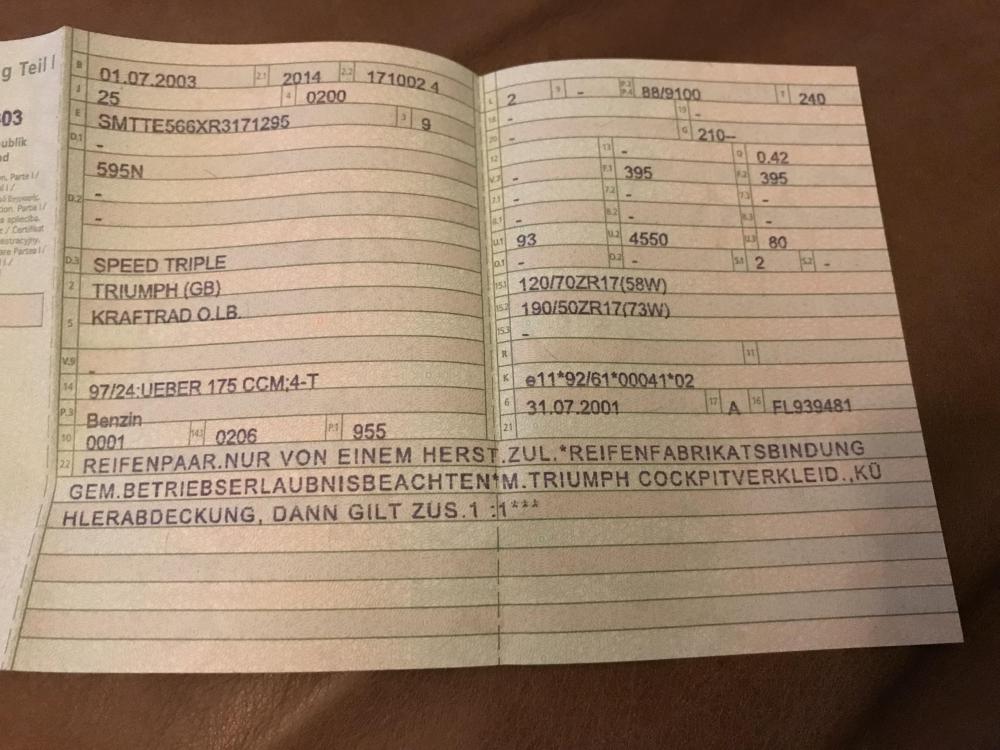 g Teil I
03
ublik
nd
B 01.07.2003 2.1 2014 2.2 171002 4
J 25 4 0200
E SMTTE566XR3171295 3 9
D.1 -
595N
D.2 -
-
D.3 SPEED TRIPLE
2 TRIUMPH (GB)
5 KRAFTRAD O.LB.
V.9 -
14 97/24:UEBER 175 CCM;4-T
P.3 Benzin
10 0001 14.1 0206 P.1 955
L 2 9 - P.2 P.4 88/9100 T 240
18 - 19 -
20 - G 210--
12 13 - Q 0.42
V.7 - F.1 395 F.2 395
7.1 - 7.2 - 7.3 -
8.1 - 8.2 - 8.3 -
U.1 93 U.2 4550 U.3 80
O.1 - O.2 - S.1 2 S.2 -
15.1 120/70ZR17(58W)
15.2 190/50ZR17(73W)
15.3 -
R 11
K e11*92/61*00041*02
6 31.07.2001 17 A 16 FL939481
21
22 REIFENPAAR.NUR VON EINEM HERST.ZUL.*REIFENFABRIKATSBINDUNG
GEM.BETRIEBSERLAUBNISBEACHTEN*M.TRIUMPH COCKPITVERKLEID.,KÜ
HLERABDECKUNG, DANN GILT ZUS.1 :1***